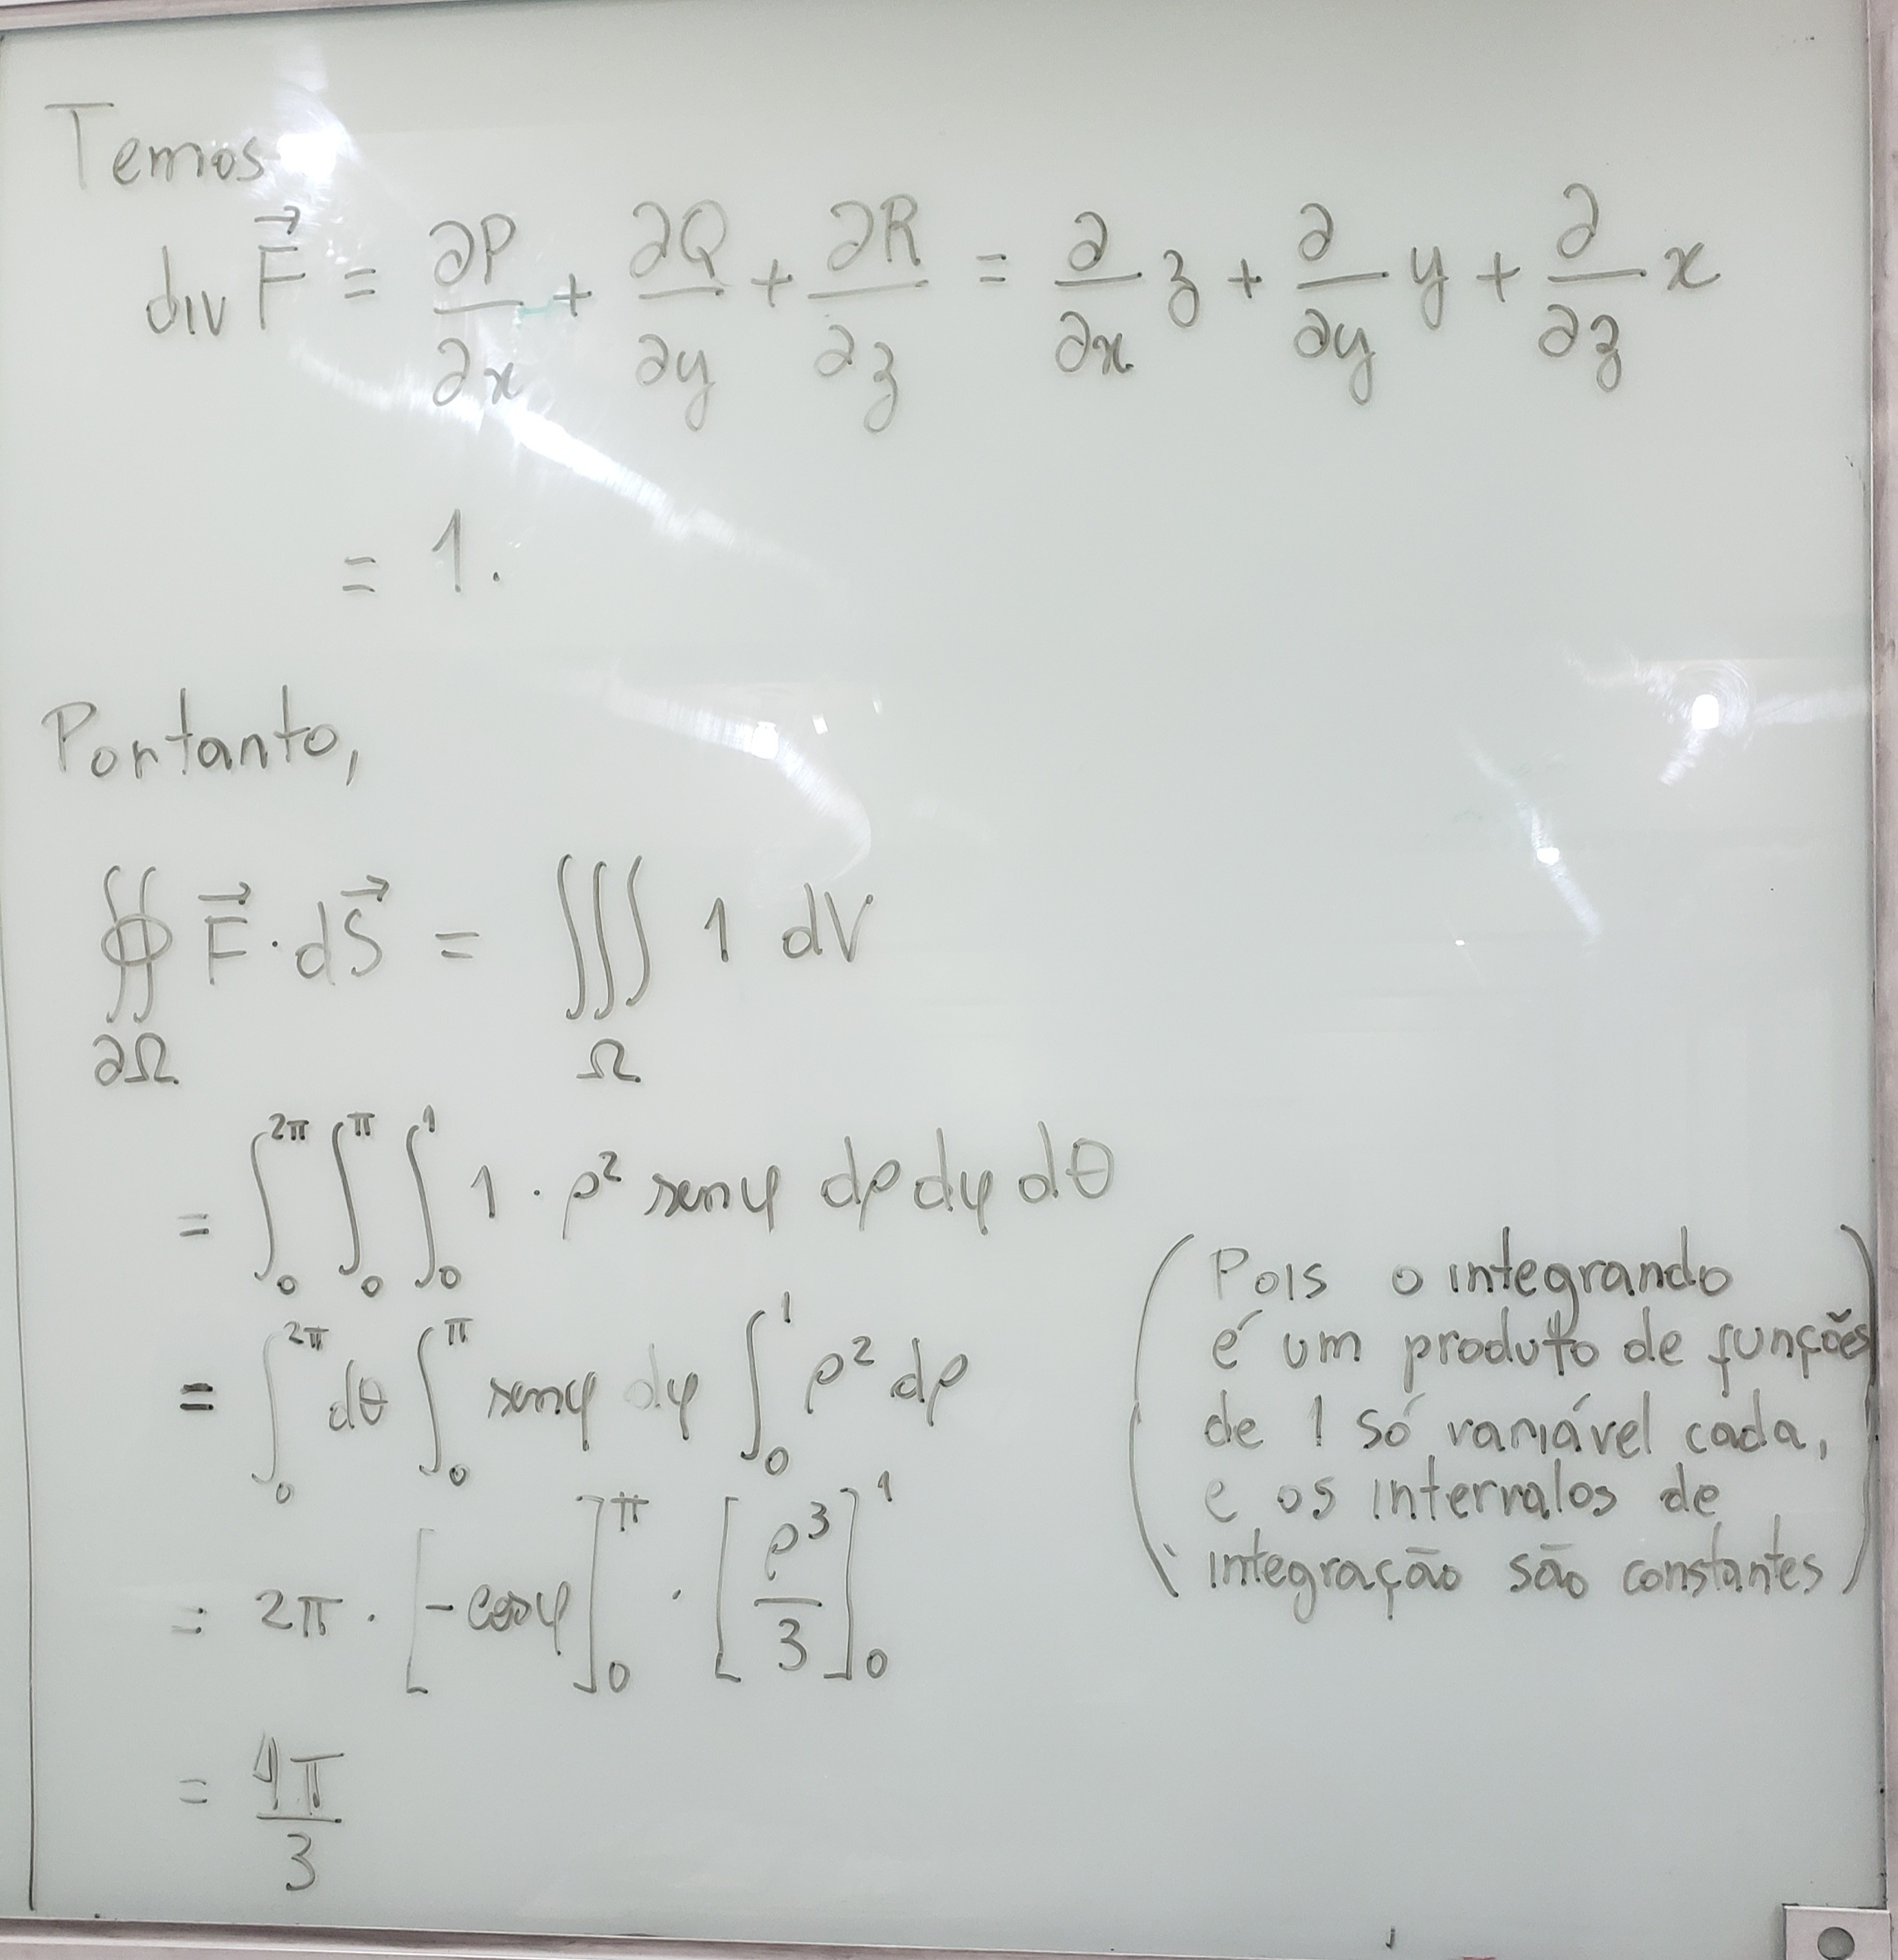 Temos
div F⃗ = ∂P/∂x + ∂Q/∂y + ∂R/∂z = ∂/∂x z + ∂/∂y y + ∂/∂z x
= 1.
Portanto,
∯_∂Ω F⃗ · dS⃗ = ∭_Ω 1 dV
= ∫_0^2π ∫_0^π ∫_0^1 1 · ρ² sen φ dρ dφ dθ
= ∫_0^2π dθ ∫_0^π sen φ dφ ∫_0^1 ρ² dρ
(Pois o integrando
é um produto de funções
de 1 só variável cada,
e os intervalos de
integração são constantes)
= 2π · [-cos φ]_0^π · [ρ³/3]_0^1
= 4π/3